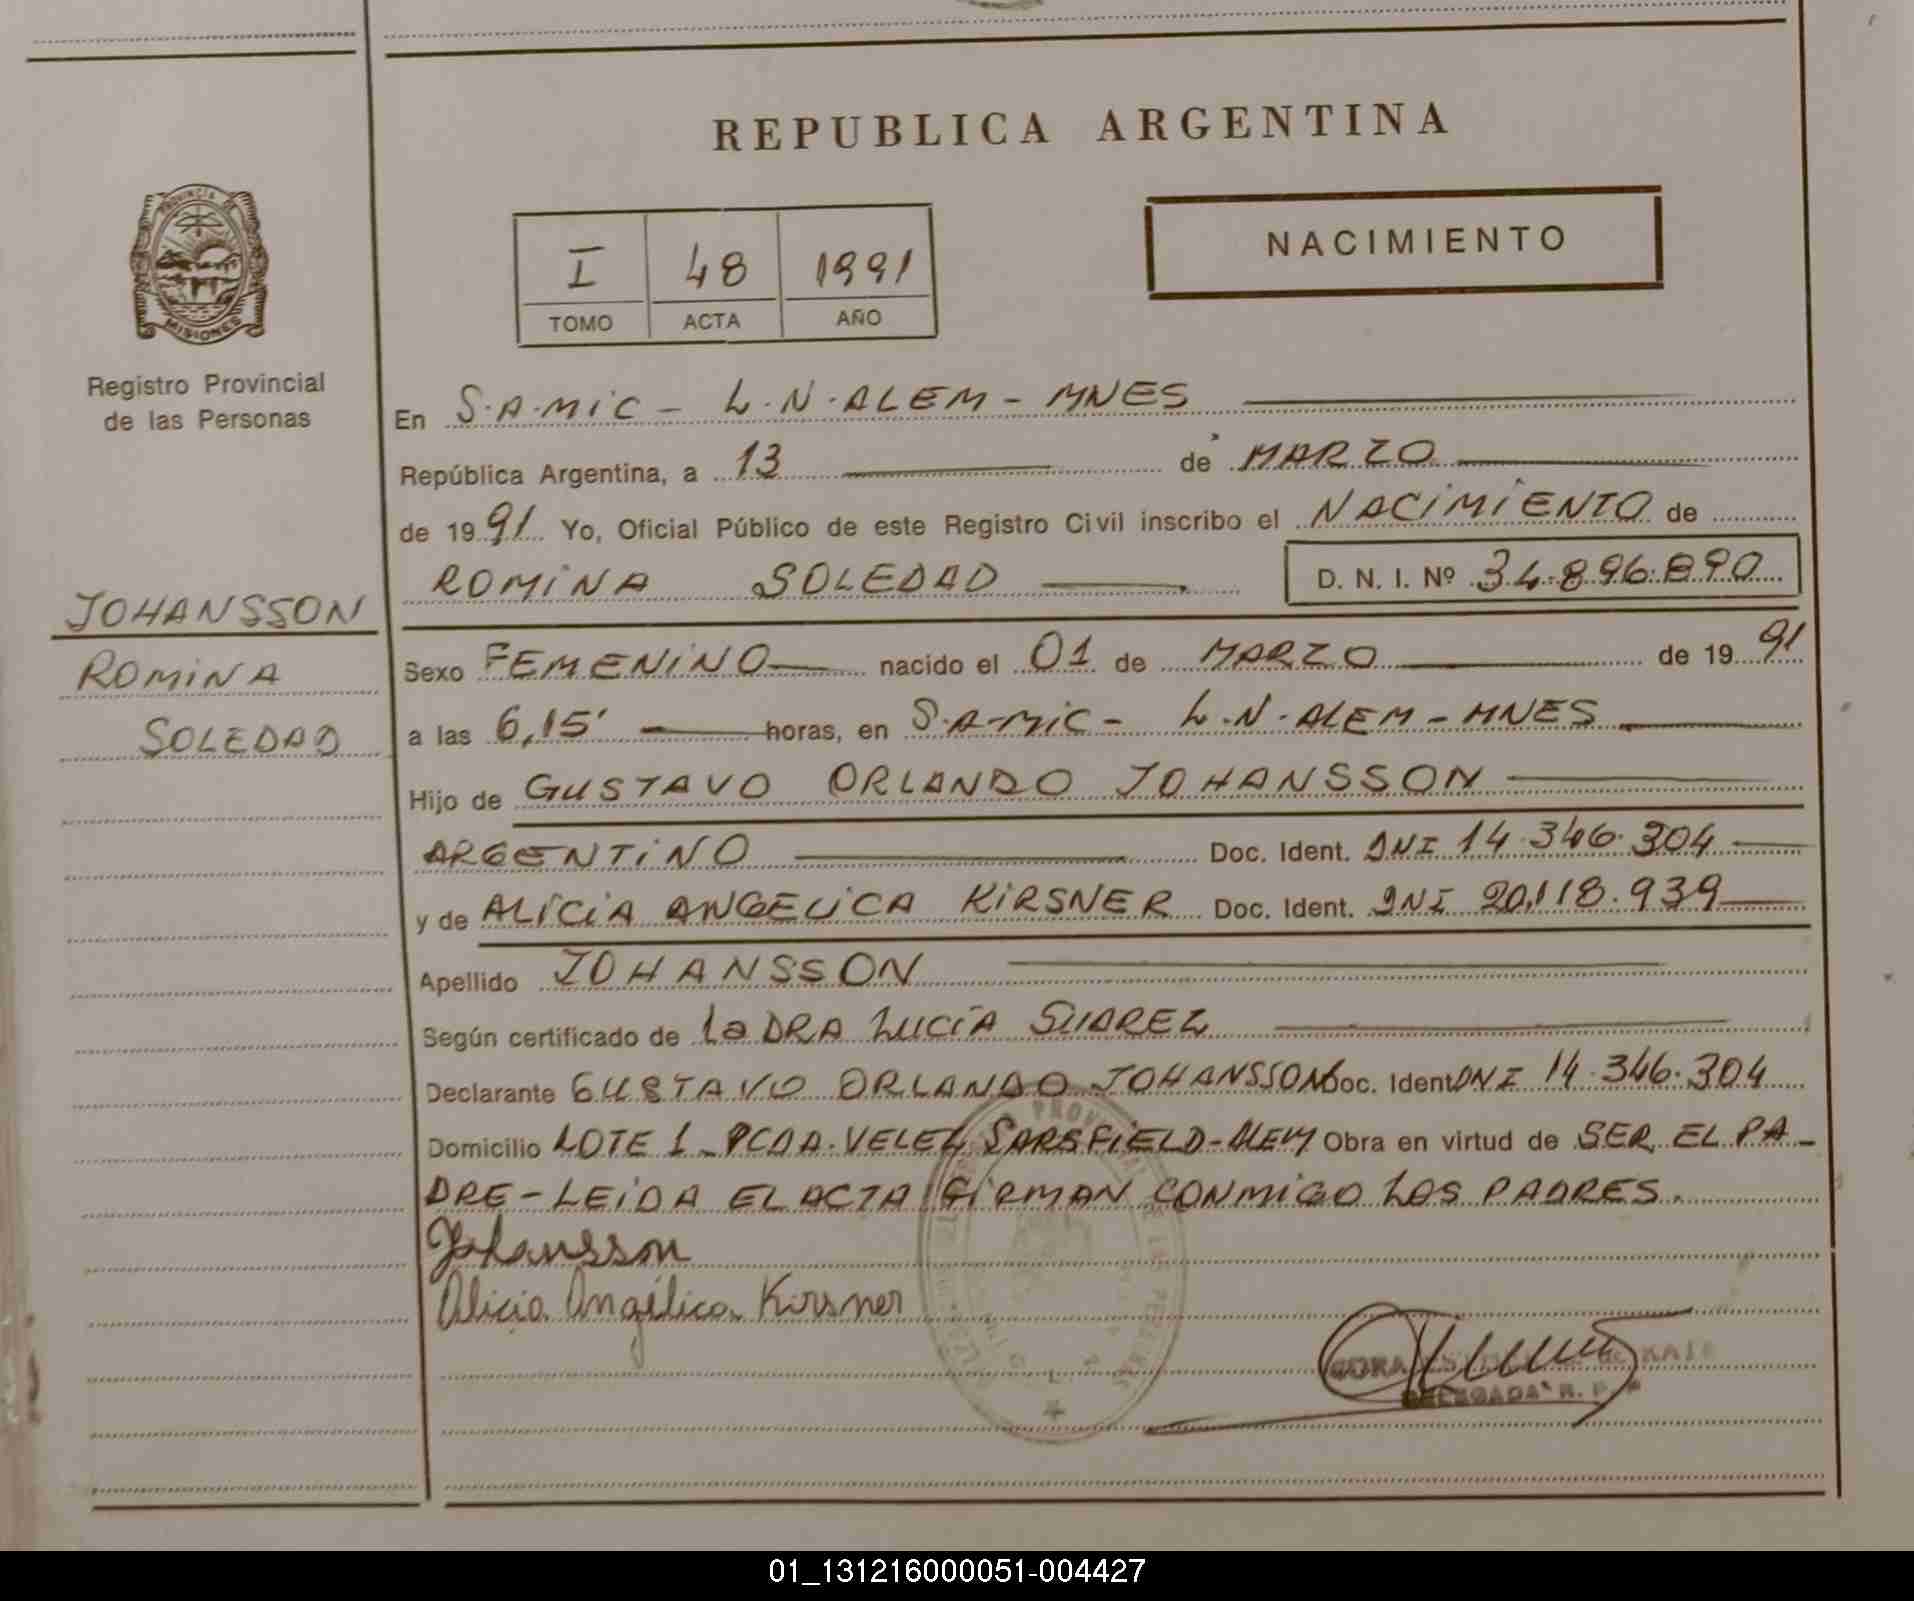 REPUBLICA ARGENTINA
PROVINCIA DE
MISIONES
Registro Provincial
de las Personas
I 48 1991
TOMO ACTA AÑO
NACIMIENTO
En S.A.MiC - L.N.ALEM - MNES
República Argentina, a 13 de MARZO
de 1991 Yo, Oficial Público de este Registro Civil inscribo el NACIMIENTO de
ROMINA SOLEDAD D. N. I. Nº 34.896.890
JOHANSSON
ROMINA
SOLEDAD
Sexo FEMENINO nacido el 01 de MARZO de 1991
a las 6,15' horas, en S.A-MiC - L.N.ALEM - MNES
Hijo de GUSTAVO ORLANDO JOHANSSON
ARGENTINO Doc. Ident. DNI 14.346.304
y de ALICIA ANGELICA KIRSNER Doc. Ident. DNI 20.118.939
Apellido JOHANSSON
Según certificado de la DRA LUCIA SUAREZ
Declarante GUSTAVO ORLANDO JOHANSSON Doc. Ident. DNI 14.346.304
Domicilio LOTE 1 - PCDA. VELEZ SARSFIELD - ALEM Obra en virtud de SER EL PA-
DRE - LEIDA EL ACTA FIRMAN CONMIGO LOS PADRES.
Johansson
Alicia Angélica Kirsner
DELEGADA R. P.
01_131216000051-004427